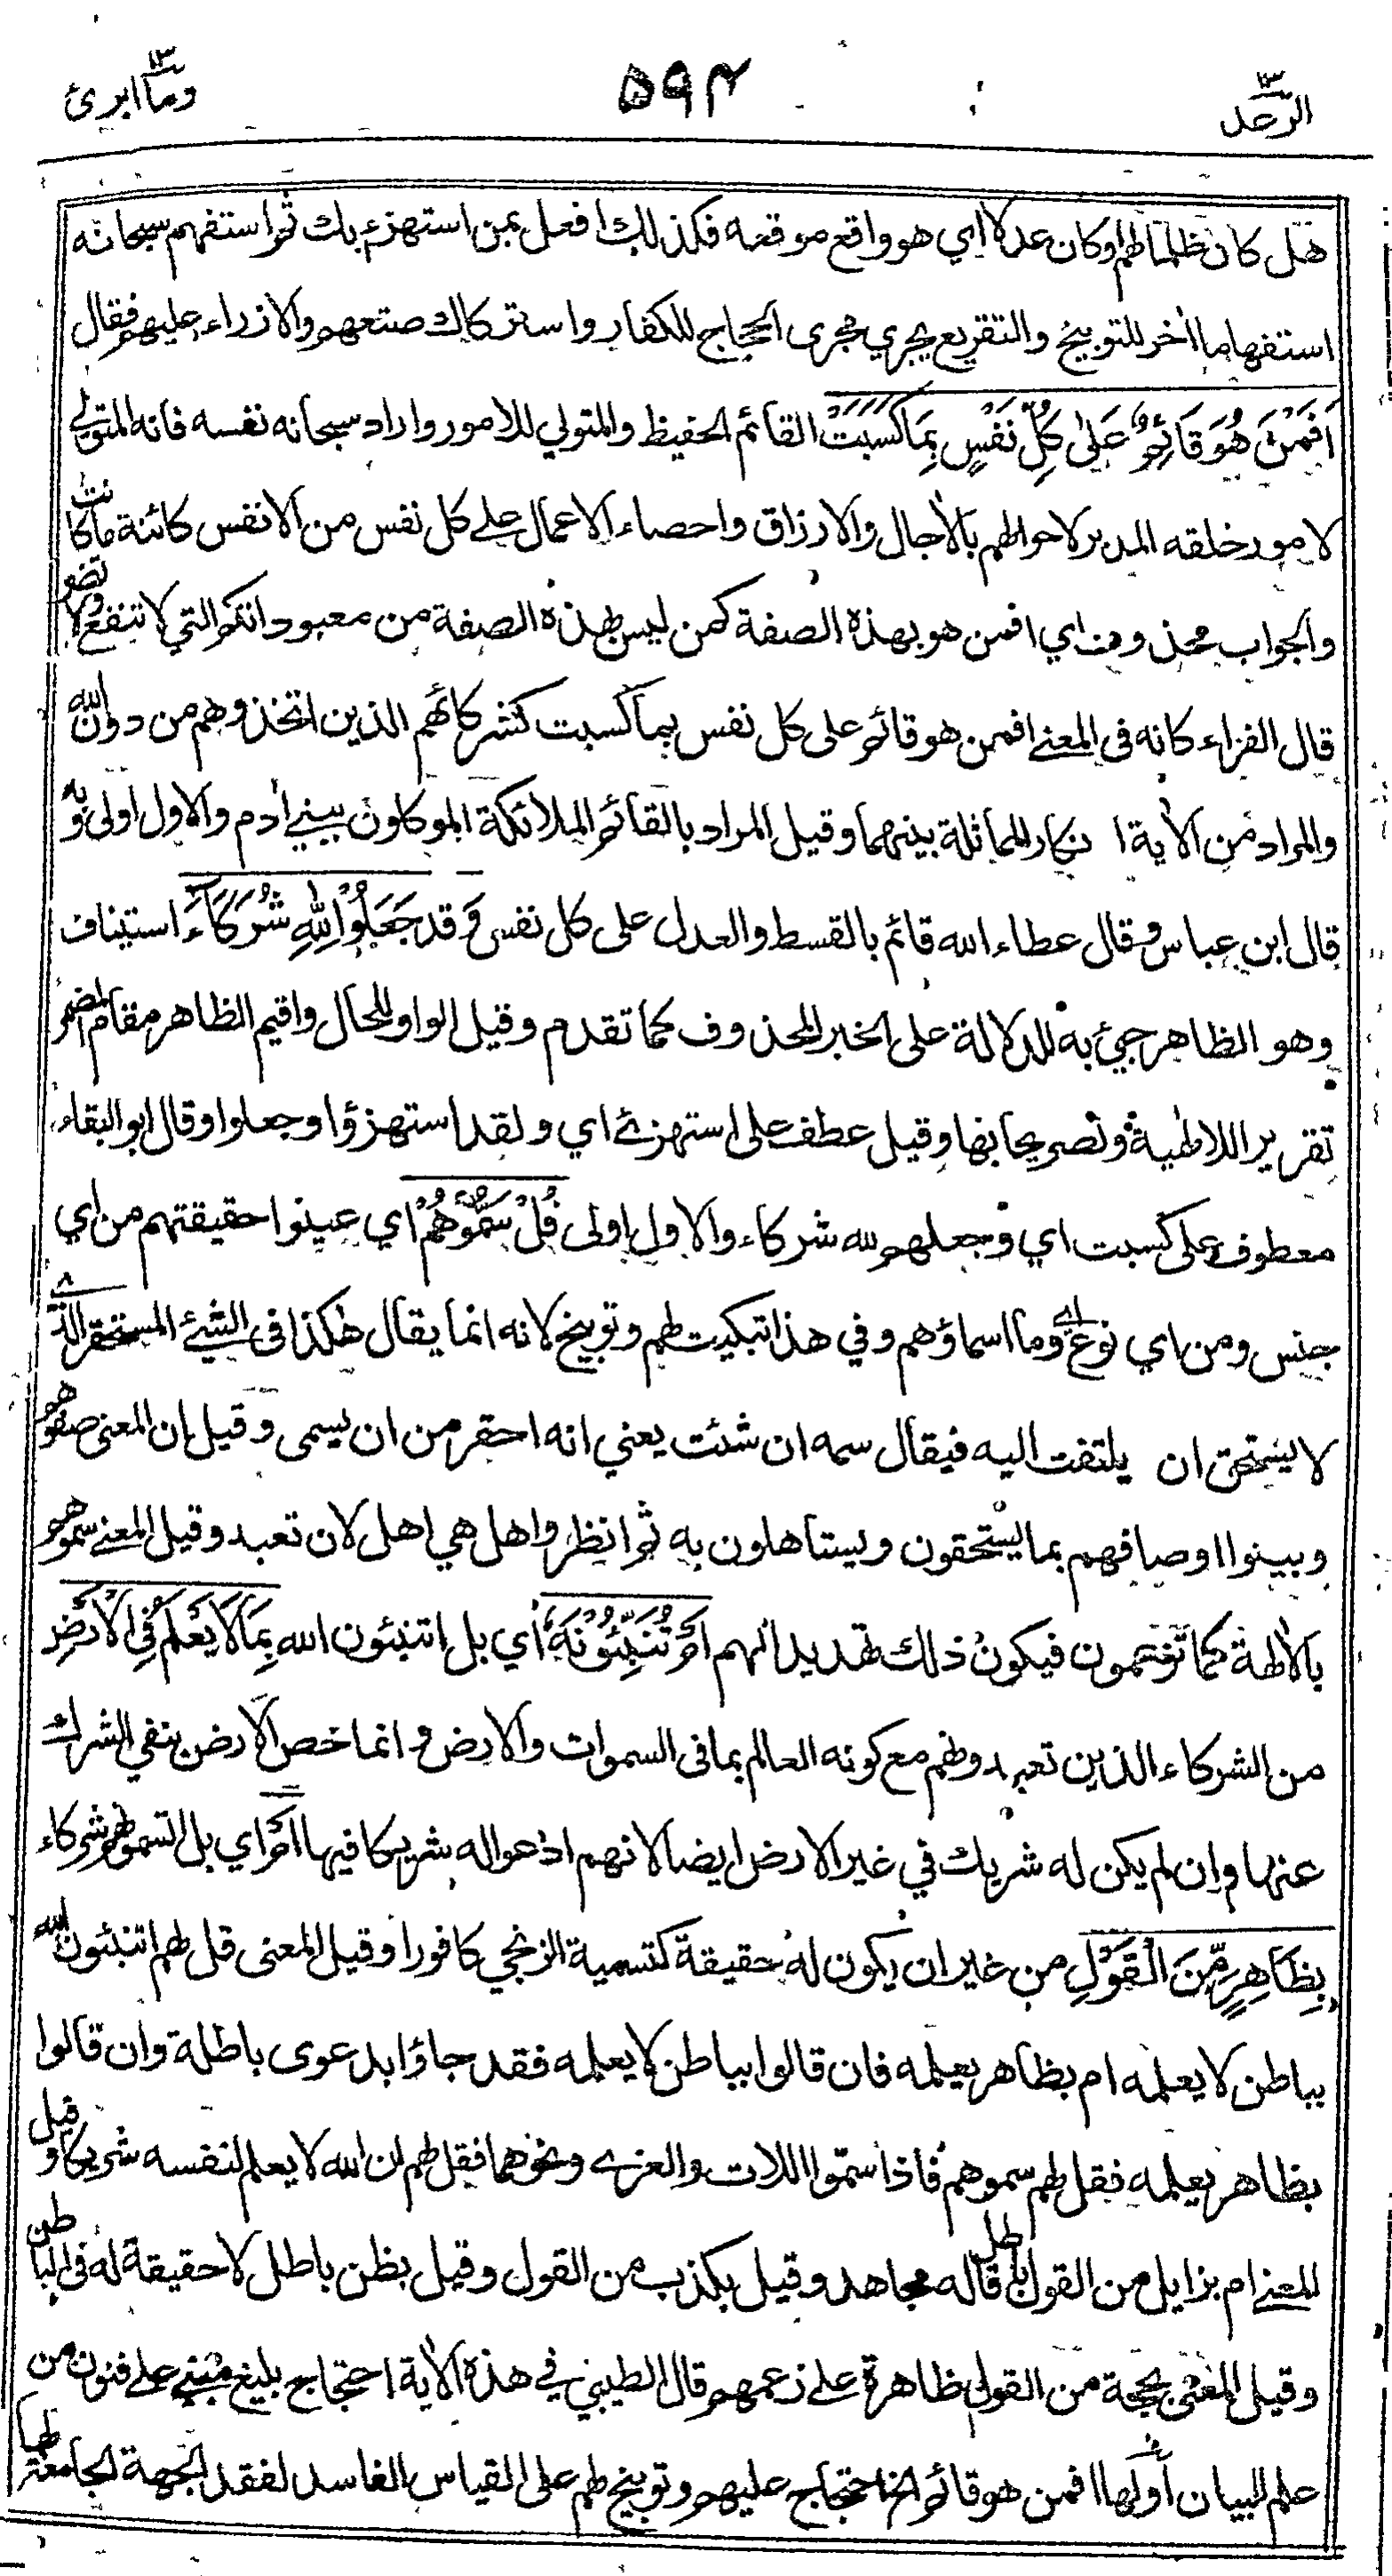 الرعد ١٣
٥٩٤
وما ابرئ ١٣
هل كان ظلما لهم او كان عدلا اي هو واقع موقعه فكذلك افعل بمن استهزء بك ثم استفهم سبحانه
استفهاما أخر للتوبيخ والتقريع يجري مجرى الحجاج للكفار واستركاك صنعهم والازراء عليهم فقال
اَفَمَنْ هُوَ قَائِمٌ عَلٰى كُلِّ نَفْسٍ بِمَا كَسَبَتْ القائم الحفيظ والمتولي للامور واراد سبحانه نفسه فانه المتولي
لامور خلقه المدبر لاحوالهم بالأجال والارزاق واحصاء الاعمال على كل نفس من الانفس كائنة ما كانت
والجواب محذوف اي افمن هو بهذه الصفة كمن ليس بهذه الصفة من معبوداتكم التي لا تنفع ولا تضر
قال الفراء كانه فى المعنى افمن هو قائم على كل نفس بما كسبت كشركائهم الذين اتخذوهم من دون الله
والمراد من الأية انكار المماثلة بينهما وقيل المراد بالقائم الملائكة الموكلون ببني أدم والاول اولى وبه
قال ابن عباس وقال عطاء الله قائم بالقسط والعدل على كل نفس وَ قد جَعَلُوْا لِلّٰهِ شُرَكَآءَ استيناف
وهو الظاهر جيئ به للدلالة على الخبر المحذوف كما تقدم وقيل الواو للحال واقيم الظاهر مقام المضمر
تقريرا للالهية وتصريحا بها وقيل عطف على استهزئ اي ولقد استهزؤا وجعلوا وقال ابو البقاء
معطوف على كسبت اي وجعلهم لله شركاء والاول اولى قُلْ سَمُّوْهُمْ اي عينوا حقيقتهم من اي
جنس ومن اي نوع اي وما اسماؤهم وفي هذا تبكيت لهم وتوبيخ لانه انما يقال هكذا فى الشيئ المستحقر الذي
لا يستحق ان يلتفت اليه فيقال سمه ان شئت يعني انه احقر من ان يسمى وقيل ان المعنى صفوهم
وبينوا اوصافهم بما يستحقون ويستاهلون به ثم انظروا هل هي اهل لان تعبد وقيل المعنى سموهم
بالألهة كما تزعمون فيكون ذلك تهديدا لهم اَمْ تُنَبِّئُوْنَهٗ اي بل اتنبئون الله بِمَا لَا يَعْلَمُ فِى الْاَرْضِ
من الشركاء الذين تعبدونهم مع كونه العالم بما فى السموات والارض وانما خص الارض بنفي الشراك
عنها وان لم يكن له شريك في غير الارض ايضا لانهم ادعوا له شريكا فيها اَمْ اي بل اتسمونهم شركاء
بِظَاهِرٍ مِّنَ الْقَوْلِ من غير ان يكون له حقيقة كتسمية الزنجي كافورا وقيل المعنى قل لهم اتنبئون الله
بباطن لا يعلمه ام بظاهر يعلمه فان قالوا بباطن لا يعلمه فقد جاؤا بدعوى باطلة وان قالوا
بظاهر يعلمه فقل لهم سموهم فاذا سمّوا اللات والعزى ونحوهما فقل لهم ان الله لا يعلم لنفسه شريكا وقيل
المعنى ام بزايل من القول باطل قاله مجاهد وقيل بكذب من القول وقيل بظن باطل لا حقيقة له فى الباطن
وقيل المعنى بحجة من القول ظاهرة على زعمهم قال الطيبي في هذه الأية احتجاج بليغ مبني على فنون من
علم البيان أولها افمن هو قائم الخ احتجاج عليهم وتوبيخ لهم على القياس الفاسد لفقد الجهة الجامعة لها